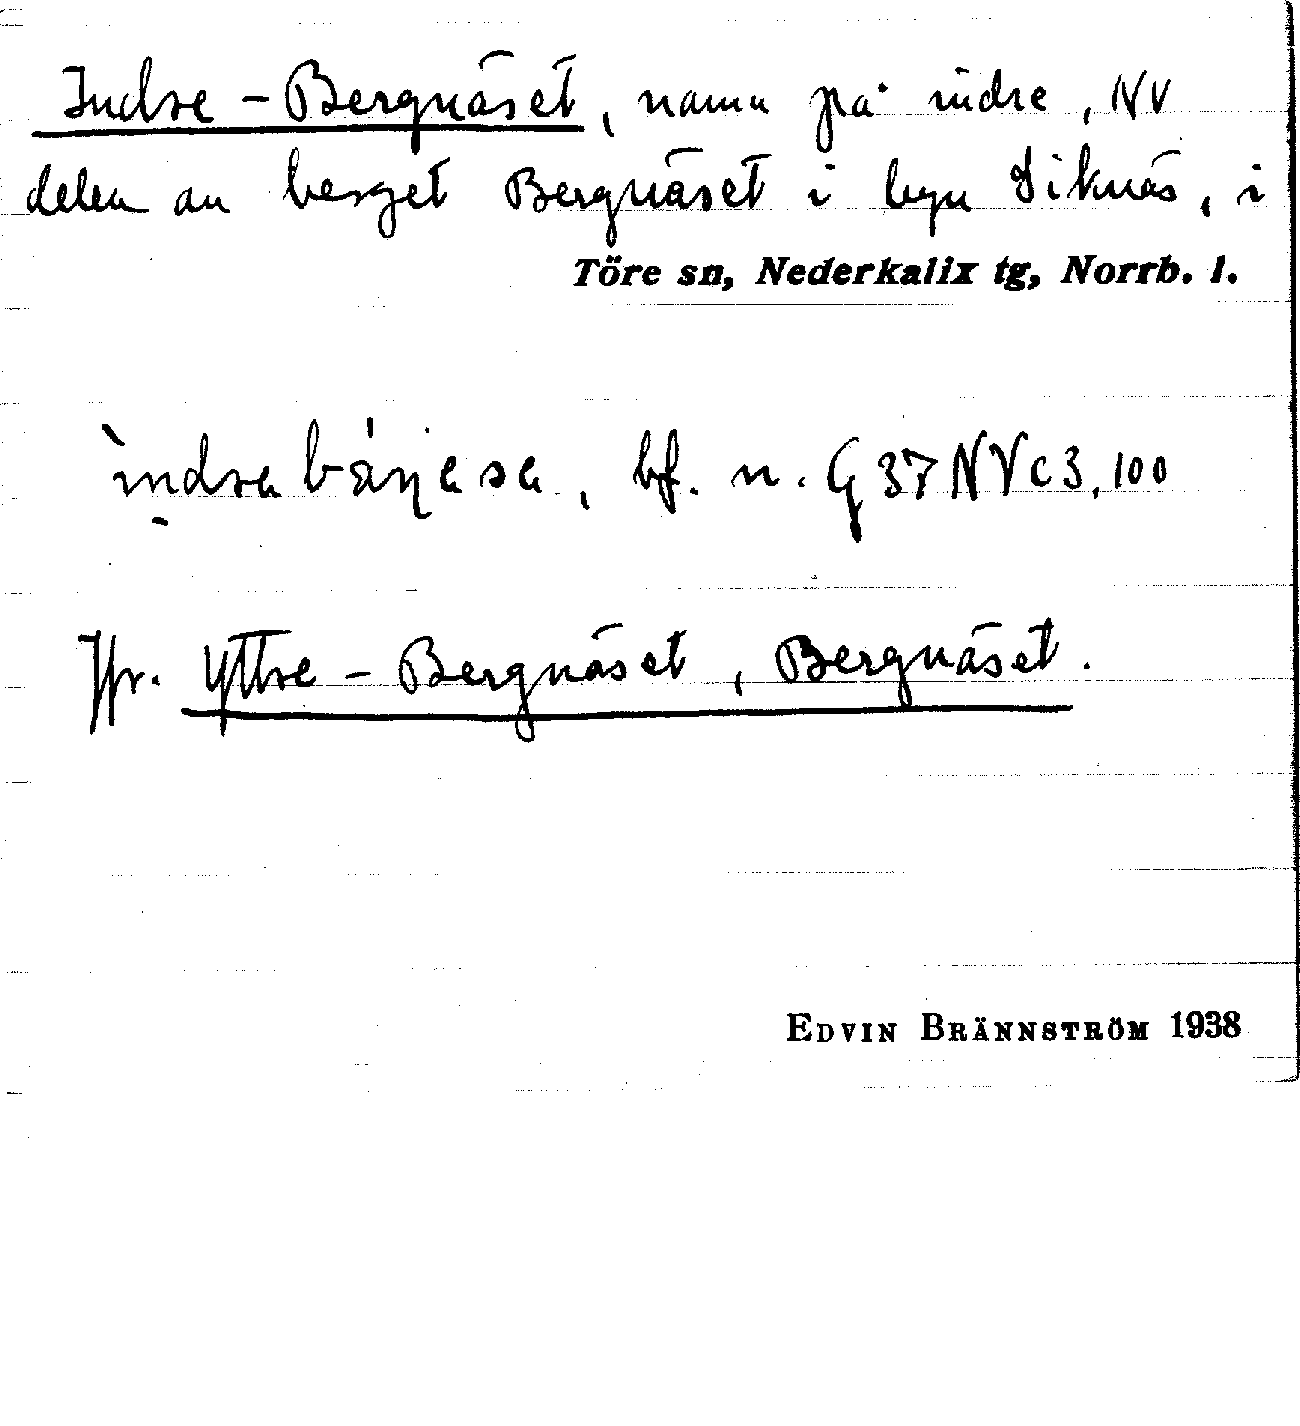 Indre-Bergnäset, namn på indre, NV
delen av berget Bergnäset i byn Siknäs, i
Töre sn, Nederkalix tg, Norrb. l.
bf. n. G 37 NV c 3, 100
Jfr. Yttre-Bergnäset, Bergnäset.
EDVIN BRÄNNSTRÖM 1938